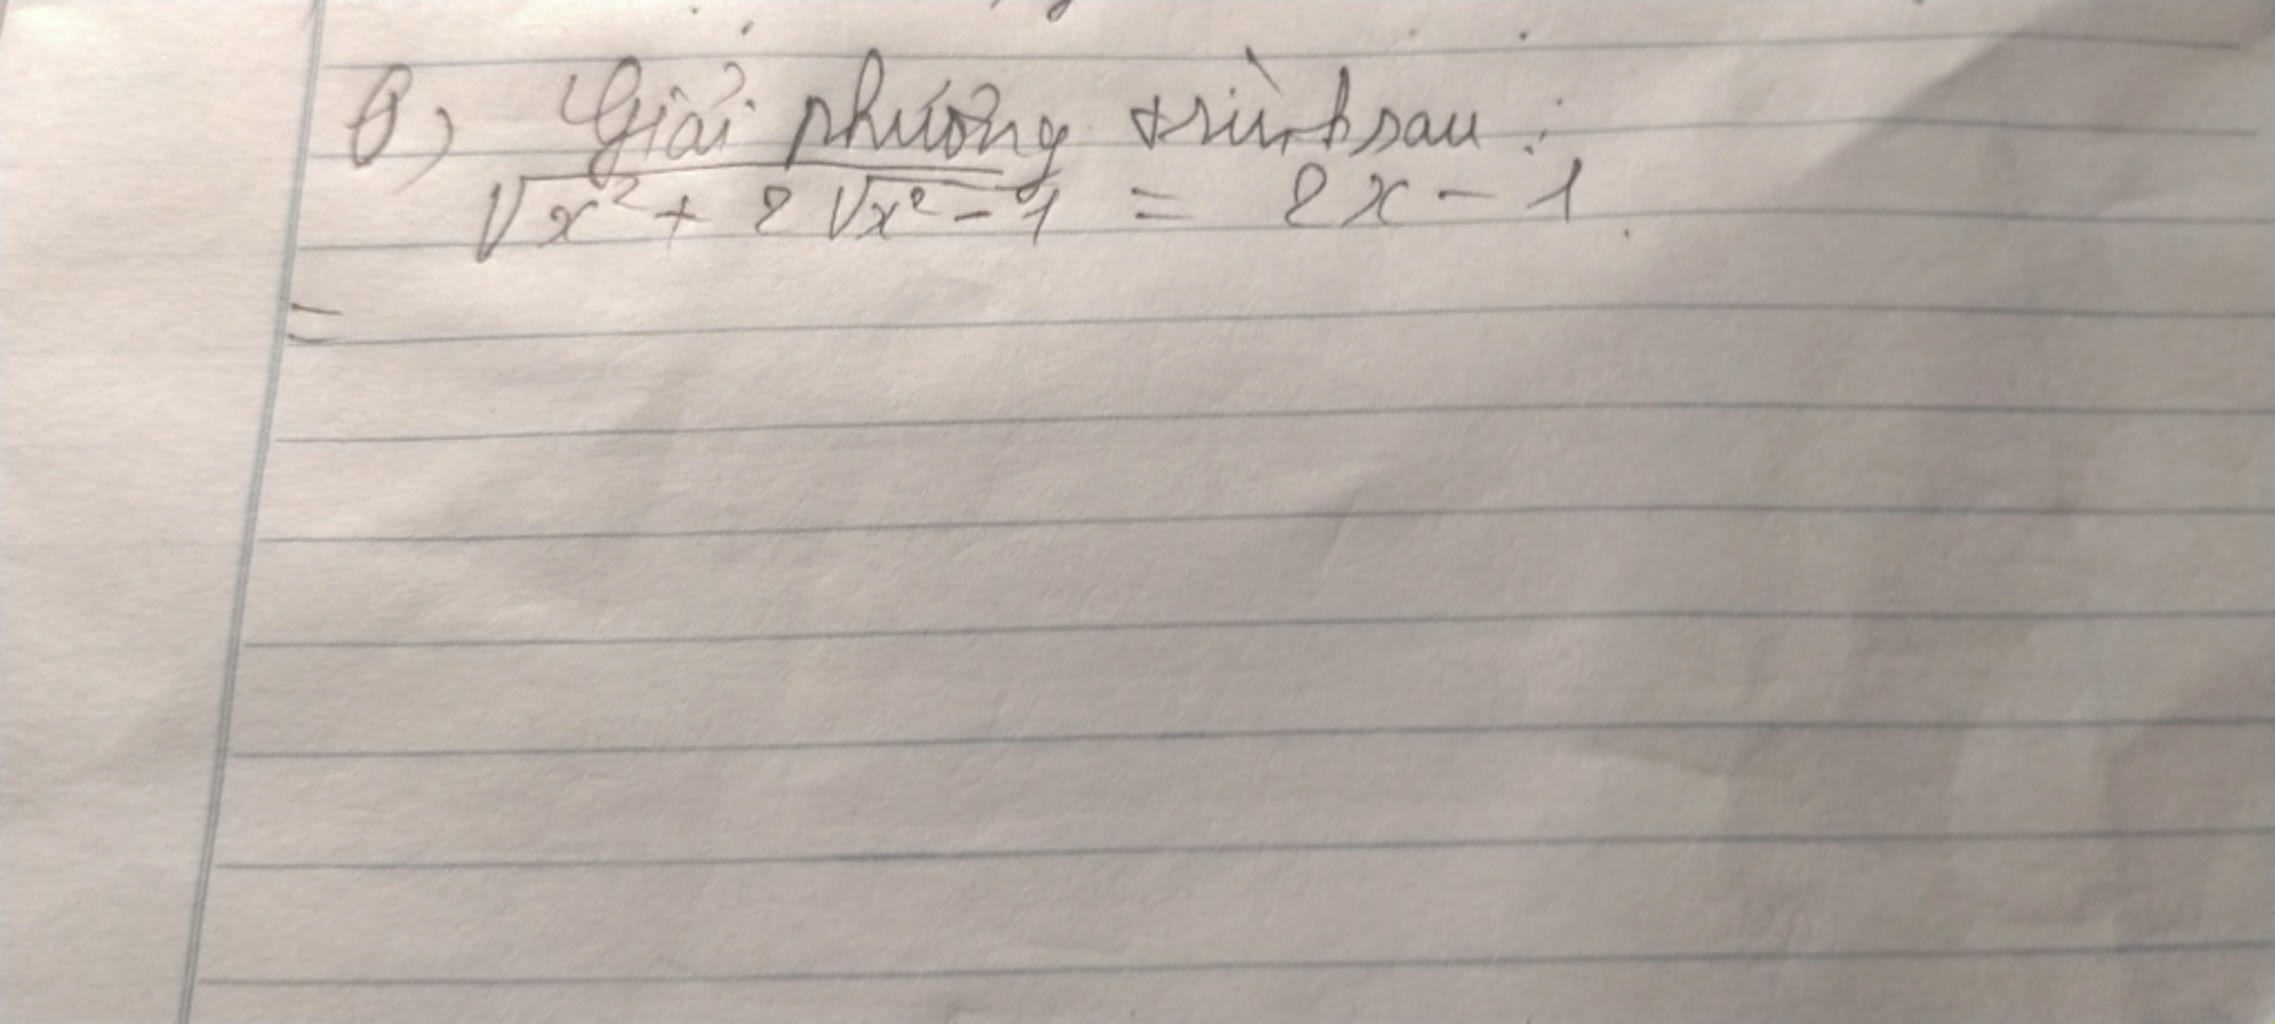 B, Giải phương trình sau :
√(x² + 2√(x² - 1)) = 2x - 1.
=